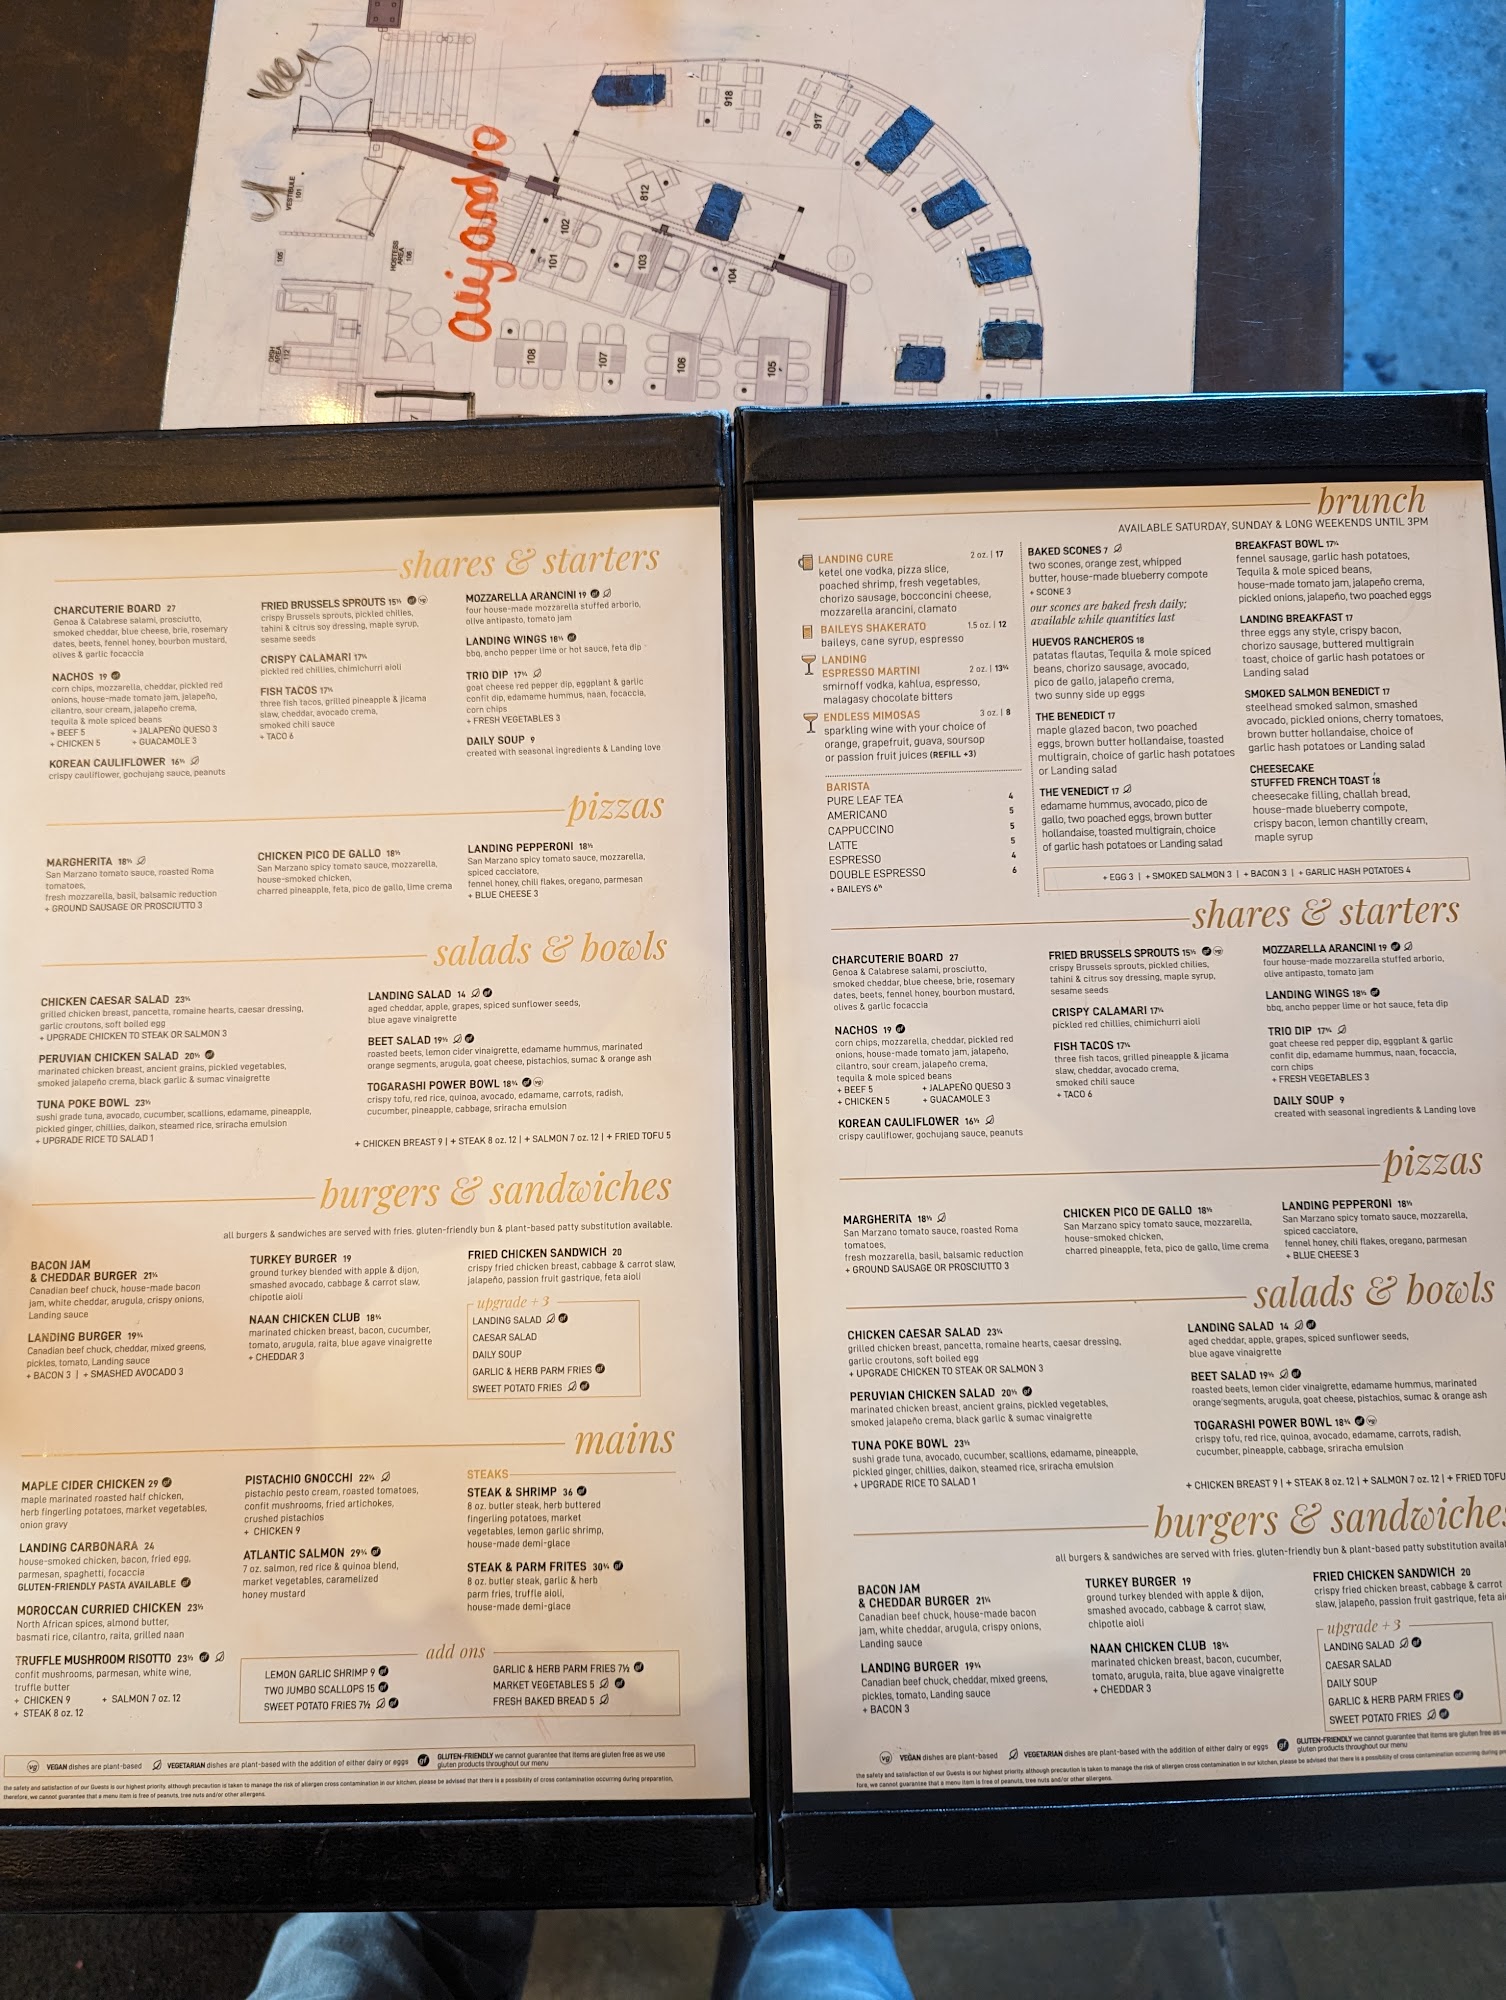 alijandro
VESTIBULE
101
HOSTESS
AREA
106
105
DISH
AREA
112
918
917
812
102
101
103
104
108
107
106
105
shares & starters
CHARCUTERIE BOARD 27
Genoa & Calabrese salami, prosciutto,
smoked cheddar, blue cheese, brie, rosemary
dates, beets, fennel honey, bourbon mustard,
olives & garlic focaccia
NACHOS 19 gf
corn chips, mozzarella, cheddar, pickled red
onions, house-made tomato jam, jalapeño,
cilantro, sour cream, jalapeño crema,
tequila & mole spiced beans
+ BEEF 5 + JALAPEÑO QUESO 3
+ CHICKEN 5 + GUACAMOLE 3
KOREAN CAULIFLOWER 16½
crispy cauliflower, gochujang sauce, peanuts
FRIED BRUSSELS SPROUTS 15½ gf vg
crispy Brussels sprouts, pickled chilies,
tahini & citrus soy dressing, maple syrup,
sesame seeds
CRISPY CALAMARI 17¼
pickled red chillies, chimichurri aioli
FISH TACOS 17¼
three fish tacos, grilled pineapple & jicama
slaw, cheddar, avocado crema,
smoked chili sauce
+ TACO 6
MOZZARELLA ARANCINI 19 gf
four house-made mozzarella stuffed arborio,
olive antipasto, tomato jam
LANDING WINGS 18½ gf
bbq, ancho pepper lime or hot sauce, feta dip
TRIO DIP 17¼
goat cheese red pepper dip, eggplant & garlic
confit dip, edamame hummus, naan, focaccia,
corn chips
+ FRESH VEGETABLES 3
DAILY SOUP 9
created with seasonal ingredients & Landing love
pizzas
MARGHERITA 18½
San Marzano tomato sauce, roasted Roma
tomatoes,
fresh mozzarella, basil, balsamic reduction
+ GROUND SAUSAGE OR PROSCIUTTO 3
CHICKEN PICO DE GALLO 18½
San Marzano spicy tomato sauce, mozzarella,
house-smoked chicken,
charred pineapple, feta, pico de gallo, lime crema
LANDING PEPPERONI 18½
San Marzano spicy tomato sauce, mozzarella,
spiced cacciatore,
fennel honey, chili flakes, oregano, parmesan
+ BLUE CHEESE 3
salads & bowls
CHICKEN CAESAR SALAD 23¼
grilled chicken breast, pancetta, romaine hearts, caesar dressing,
garlic croutons, soft boiled egg
+ UPGRADE CHICKEN TO STEAK OR SALMON 3
PERUVIAN CHICKEN SALAD 20½ gf
marinated chicken breast, ancient grains, pickled vegetables,
smoked jalapeño crema, black garlic & sumac vinaigrette
TUNA POKE BOWL 23½
sushi grade tuna, avocado, cucumber, scallions, edamame, pineapple,
pickled ginger, chillies, daikon, steamed rice, sriracha emulsion
+ UPGRADE RICE TO SALAD 1
LANDING SALAD 14 gf
aged cheddar, apple, grapes, spiced sunflower seeds,
blue agave vinaigrette
BEET SALAD 19½ gf
roasted beets, lemon cider vinaigrette, edamame hummus, marinated
orange segments, arugula, goat cheese, pistachios, sumac & orange ash
TOGARASHI POWER BOWL 18¾ gf vg
crispy tofu, red rice, quinoa, avocado, edamame, carrots, radish,
cucumber, pineapple, cabbage, sriracha emulsion
+ CHICKEN BREAST 9 | + STEAK 8 oz. 12 | + SALMON 7 oz. 12 | + FRIED TOFU 5
burgers & sandwiches
all burgers & sandwiches are served with fries. gluten-friendly bun & plant-based patty substitution available.
BACON JAM
& CHEDDAR BURGER 21¼
Canadian beef chuck, house-made bacon
jam, white cheddar, arugula, crispy onions,
Landing sauce
LANDING BURGER 19¾
Canadian beef chuck, cheddar, mixed greens,
pickles, tomato, Landing sauce
+ BACON 3 | + SMASHED AVOCADO 3
TURKEY BURGER 19
ground turkey blended with apple & dijon,
smashed avocado, cabbage & carrot slaw,
chipotle aioli
NAAN CHICKEN CLUB 18¾
marinated chicken breast, bacon, cucumber,
tomato, arugula, raita, blue agave vinaigrette
+ CHEDDAR 3
FRIED CHICKEN SANDWICH 20
crispy fried chicken breast, cabbage & carrot slaw,
jalapeño, passion fruit gastrique, feta aioli
upgrade + 3
LANDING SALAD gf
CAESAR SALAD
DAILY SOUP
GARLIC & HERB PARM FRIES gf
SWEET POTATO FRIES gf
mains
MAPLE CIDER CHICKEN 29 gf
maple marinated roasted half chicken,
herb fingerling potatoes, market vegetables,
onion gravy
LANDING CARBONARA 24
house-smoked chicken, bacon, fried egg,
parmesan, spaghetti, focaccia
GLUTEN-FRIENDLY PASTA AVAILABLE gf
MOROCCAN CURRIED CHICKEN 23½
North African spices, almond butter,
basmati rice, cilantro, raita, grilled naan
TRUFFLE MUSHROOM RISOTTO 23½ gf
confit mushrooms, parmesan, white wine,
truffle butter
+ CHICKEN 9 + SALMON 7 oz. 12
+ STEAK 8 oz. 12
PISTACHIO GNOCCHI 22¼
pistachio pesto cream, roasted tomatoes,
confit mushrooms, fried artichokes,
crushed pistachios
+ CHICKEN 9
ATLANTIC SALMON 29¾ gf
7 oz. salmon, red rice & quinoa blend,
market vegetables, caramelized
honey mustard
STEAKS
STEAK & SHRIMP 36 gf
8 oz. butler steak, herb buttered
fingerling potatoes, market
vegetables, lemon garlic shrimp,
house-made demi-glace
STEAK & PARM FRITES 30¾ gf
8 oz. butler steak, garlic & herb
parm fries, truffle aioli,
house-made demi-glace
add ons
LEMON GARLIC SHRIMP 9 gf
TWO JUMBO SCALLOPS 15 gf
SWEET POTATO FRIES 7½ gf
GARLIC & HERB PARM FRIES 7½ gf
MARKET VEGETABLES 5 gf
FRESH BAKED BREAD 5
vg VEGAN dishes are plant-based VEGETARIAN dishes are plant-based with the addition of either dairy or eggs gf GLUTEN-FRIENDLY we cannot guarantee that items are gluten free as we use
gluten products throughout our menu
the safety and satisfaction of our Guests is our highest priority. although precaution is taken to manage the risk of allergen cross contamination in our kitchen, please be advised that there is a possibility of cross contamination occurring during preparation,
therefore, we cannot guarantee that a menu item is free of peanuts, tree nuts and/or other allergens.
brunch
AVAILABLE SATURDAY, SUNDAY & LONG WEEKENDS UNTIL 3PM
LANDING CURE 2 oz. | 17
ketel one vodka, pizza slice,
poached shrimp, fresh vegetables,
chorizo sausage, bocconcini cheese,
mozzarella arancini, clamato
BAILEYS SHAKERATO 1.5 oz. | 12
baileys, cane syrup, espresso
LANDING
ESPRESSO MARTINI 2 oz. | 13¾
smirnoff vodka, kahlua, espresso,
malagasy chocolate bitters
ENDLESS MIMOSAS 3 oz. | 8
sparkling wine with your choice of
orange, grapefruit, guava, soursop
or passion fruit juices (REFILL +3)
BARISTA
PURE LEAF TEA 4
AMERICANO 5
CAPPUCCINO 5
LATTE 5
ESPRESSO 4
DOUBLE ESPRESSO 6
+ BAILEYS 6½
BAKED SCONES 7
two scones, orange zest, whipped
butter, house-made blueberry compote
+ SCONE 3
our scones are baked fresh daily;
available while quantities last
HUEVOS RANCHEROS 18
patatas flautas, Tequila & mole spiced
beans, chorizo sausage, avocado,
pico de gallo, jalapeño crema,
two sunny side up eggs
THE BENEDICT 17
maple glazed bacon, two poached
eggs, brown butter hollandaise, toasted
multigrain, choice of garlic hash potatoes
or Landing salad
THE VENEDICT 17
edamame hummus, avocado, pico de
gallo, two poached eggs, brown butter
hollandaise, toasted multigrain, choice
of garlic hash potatoes or Landing salad
BREAKFAST BOWL 17¼
fennel sausage, garlic hash potatoes,
Tequila & mole spiced beans,
house-made tomato jam, jalapeño crema,
pickled onions, jalapeño, two poached eggs
LANDING BREAKFAST 17
three eggs any style, crispy bacon,
chorizo sausage, buttered multigrain
toast, choice of garlic hash potatoes or
Landing salad
SMOKED SALMON BENEDICT 17
steelhead smoked salmon, smashed
avocado, pickled onions, cherry tomatoes,
brown butter hollandaise, choice of
garlic hash potatoes or Landing salad
CHEESECAKE
STUFFED FRENCH TOAST 18
cheesecake filling, challah bread,
house-made blueberry compote,
crispy bacon, lemon chantilly cream,
maple syrup
+ EGG 3 | + SMOKED SALMON 3 | + BACON 3 | + GARLIC HASH POTATOES 4
shares & starters
CHARCUTERIE BOARD 27
Genoa & Calabrese salami, prosciutto,
smoked cheddar, blue cheese, brie, rosemary
dates, beets, fennel honey, bourbon mustard,
olives & garlic focaccia
NACHOS 19 gf
corn chips, mozzarella, cheddar, pickled red
onions, house-made tomato jam, jalapeño,
cilantro, sour cream, jalapeño crema,
tequila & mole spiced beans
+ BEEF 5 + JALAPEÑO QUESO 3
+ CHICKEN 5 + GUACAMOLE 3
KOREAN CAULIFLOWER 16½
crispy cauliflower, gochujang sauce, peanuts
FRIED BRUSSELS SPROUTS 15½ gf vg
crispy Brussels sprouts, pickled chilies,
tahini & citrus soy dressing, maple syrup,
sesame seeds
CRISPY CALAMARI 17¼
pickled red chillies, chimichurri aioli
FISH TACOS 17¼
three fish tacos, grilled pineapple & jicama
slaw, cheddar, avocado crema,
smoked chili sauce
+ TACO 6
MOZZARELLA ARANCINI 19 gf
four house-made mozzarella stuffed arborio,
olive antipasto, tomato jam
LANDING WINGS 18½ gf
bbq, ancho pepper lime or hot sauce, feta dip
TRIO DIP 17¼
goat cheese red pepper dip, eggplant & garlic
confit dip, edamame hummus, naan, focaccia,
corn chips
+ FRESH VEGETABLES 3
DAILY SOUP 9
created with seasonal ingredients & Landing love
pizzas
MARGHERITA 18½
San Marzano tomato sauce, roasted Roma
tomatoes,
fresh mozzarella, basil, balsamic reduction
+ GROUND SAUSAGE OR PROSCIUTTO 3
CHICKEN PICO DE GALLO 18½
San Marzano spicy tomato sauce, mozzarella,
house-smoked chicken,
charred pineapple, feta, pico de gallo, lime crema
LANDING PEPPERONI 18½
San Marzano spicy tomato sauce, mozzarella,
spiced cacciatore,
fennel honey, chili flakes, oregano, parmesan
+ BLUE CHEESE 3
salads & bowls
CHICKEN CAESAR SALAD 23¼
grilled chicken breast, pancetta, romaine hearts, caesar dressing,
garlic croutons, soft boiled egg
+ UPGRADE CHICKEN TO STEAK OR SALMON 3
PERUVIAN CHICKEN SALAD 20½ gf
marinated chicken breast, ancient grains, pickled vegetables,
smoked jalapeño crema, black garlic & sumac vinaigrette
TUNA POKE BOWL 23½
sushi grade tuna, avocado, cucumber, scallions, edamame, pineapple,
pickled ginger, chillies, daikon, steamed rice, sriracha emulsion
+ UPGRADE RICE TO SALAD 1
LANDING SALAD 14 gf
aged cheddar, apple, grapes, spiced sunflower seeds,
blue agave vinaigrette
BEET SALAD 19½ gf
roasted beets, lemon cider vinaigrette, edamame hummus, marinated
orange segments, arugula, goat cheese, pistachios, sumac & orange ash
TOGARASHI POWER BOWL 18¾ gf vg
crispy tofu, red rice, quinoa, avocado, edamame, carrots, radish,
cucumber, pineapple, cabbage, sriracha emulsion
+ CHICKEN BREAST 9 | + STEAK 8 oz. 12 | + SALMON 7 oz. 12 | + FRIED TOFU
burgers & sandwiches
all burgers & sandwiches are served with fries. gluten-friendly bun & plant-based patty substitution availa
BACON JAM
& CHEDDAR BURGER 21¼
Canadian beef chuck, house-made bacon
jam, white cheddar, arugula, crispy onions,
Landing sauce
LANDING BURGER 19¾
Canadian beef chuck, cheddar, mixed greens,
pickles, tomato, Landing sauce
+ BACON 3
TURKEY BURGER 19
ground turkey blended with apple & dijon,
smashed avocado, cabbage & carrot slaw,
chipotle aioli
NAAN CHICKEN CLUB 18¾
marinated chicken breast, bacon, cucumber,
tomato, arugula, raita, blue agave vinaigrette
+ CHEDDAR 3
FRIED CHICKEN SANDWICH 20
crispy fried chicken breast, cabbage & carrot
slaw, jalapeño, passion fruit gastrique, feta ai
upgrade + 3
LANDING SALAD gf
CAESAR SALAD
DAILY SOUP
GARLIC & HERB PARM FRIES gf
SWEET POTATO FRIES gf
vg VEGAN dishes are plant-based VEGETARIAN dishes are plant-based with the addition of either dairy or eggs gf GLUTEN-FRIENDLY we cannot guarantee that items are gluten free as w
gluten products throughout our menu
the safety and satisfaction of our Guests is our highest priority. although precaution is taken to manage the risk of allergen cross contamination in our kitchen, please be advised that there is a possibility of cross contamination occurring during
fore, we cannot guarantee that a menu item is free of peanuts, tree nuts and/or other allergens.